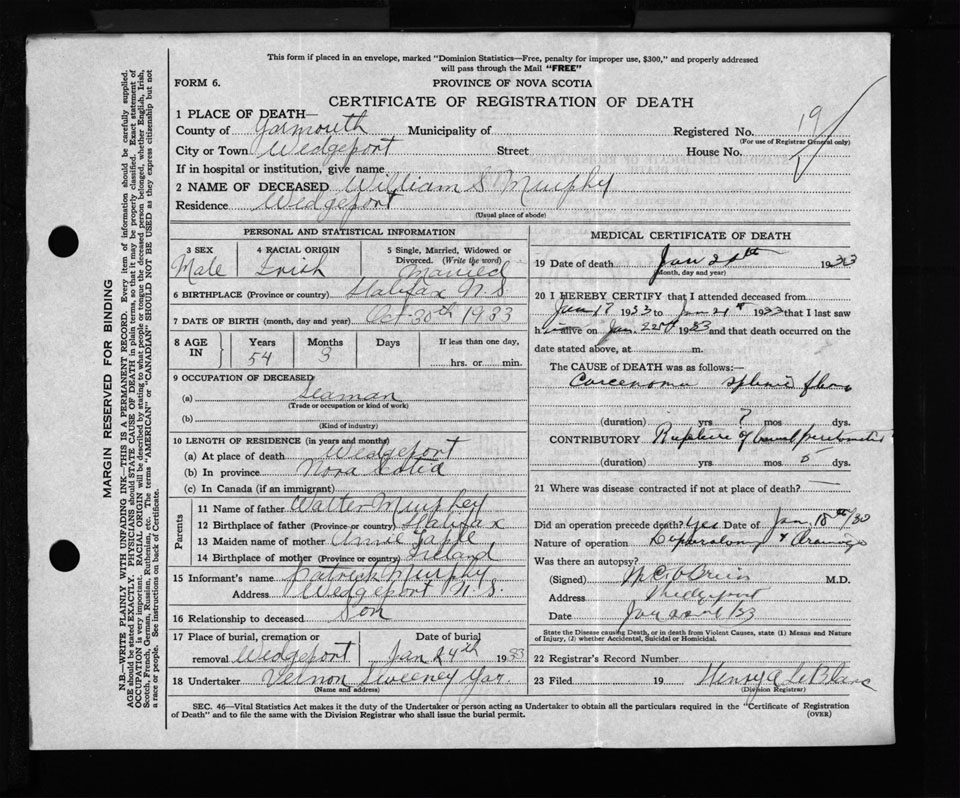 This form if placed in an envelope, marked "Dominion Statistics—Free, penalty for improper use, $300," and properly addressed
will pass through the Mail "FREE"
FORM 6. PROVINCE OF NOVA SCOTIA
CERTIFICATE OF REGISTRATION OF DEATH
1 PLACE OF DEATH—
County of Yarmouth Municipality of Registered No. 19
(For use of Registrar General only)
City or Town Wedgeport Street House No.
If in hospital or institution, give name
2 NAME OF DECEASED William S Murphy
Residence Wedgeport
(Usual place of abode)
PERSONAL AND STATISTICAL INFORMATION
3 SEX 4 RACIAL ORIGIN 5 Single, Married, Widowed or
Divorced. (Write the word)
Male Irish Married
6 BIRTHPLACE (Province or country) Halifax N.S.
7 DATE OF BIRTH (month, day and year) Oct 30th 1933
8 AGE IN Years Months Days If less than one day,
54 3 hrs. or min.
9 OCCUPATION OF DECEASED
(a) Seaman
(Trade or occupation or kind of work)
(b)
(Kind of industry)
10 LENGTH OF RESIDENCE (in years and months)
(a) At place of death Wedgeport
(b) In province Nova Scotia
(c) In Canada (if an immigrant)
Parents
11 Name of father Walter Murphy
12 Birthplace of father (Province or country) Halifax
13 Maiden name of mother Annie
14 Birthplace of mother (Province or country) Ireland
15 Informant's name Patrick Murphy
Address Wedgeport N.S.
16 Relationship to deceased Son
17 Place of burial, cremation or Date of burial
removal Wedgeport Jan 24th 1933
18 Undertaker Vernon Sweeney Yar.
(Name and address)
MEDICAL CERTIFICATE OF DEATH
19 Date of death Jan 1933
(Month, day and year)
20 I HEREBY CERTIFY that I attended deceased from
Jan 1933 to Jan 1933 that I last saw
h alive on Jan. 22nd 1933 and that death occurred on the
date stated above, at m.
The CAUSE of DEATH was as follows:—
Carcenoma splenic
(duration) yrs ? mos dys.
CONTRIBUTORY Rupture
(duration) yrs mos 5 dys.
21 Where was disease contracted if not at place of death? —
Did an operation precede death? yes Date of Jan. 18th/
Nature of operation & drainage
Was there an autopsy?
(Signed) O'Brien M.D.
Address Wedgeport
Date Jan /33
State the Disease causing Death, or in death from Violent Causes, state (1) Means and Nature
of Injury, (2) whether Accidental, Suicidal or Homicidal.
22 Registrar's Record Number
23 Filed 19 Henry A LeBlanc
(Division Registrar)
SEC. 46—Vital Statistics Act makes it the duty of the Undertaker or person acting as Undertaker to obtain all the particulars required in the "Certificate of Registration
of Death" and to file the same with the Division Registrar who shall issue the burial permit. (OVER)
MARGIN RESERVED FOR BINDING
N.B.—WRITE PLAINLY WITH UNFADING INK—THIS IS A PERMANENT RECORD. Every item of information should be carefully supplied.
AGE should be stated EXACTLY. PHYSICIANS should STATE CAUSE OF DEATH in plain terms, so that it may be properly classified. Exact statement of
OCCUPATION is very important. RACIAL ORIGIN will be described by stating to what people or tongue the deceased person belonged, whether English, Irish,
Scotch, French, German, Russian, Ruthenian, etc. The terms "AMERICAN" or "CANADIAN" SHOULD NOT BE USED as they express citizenship but not
a race or people. See instructions on back of Certificate.